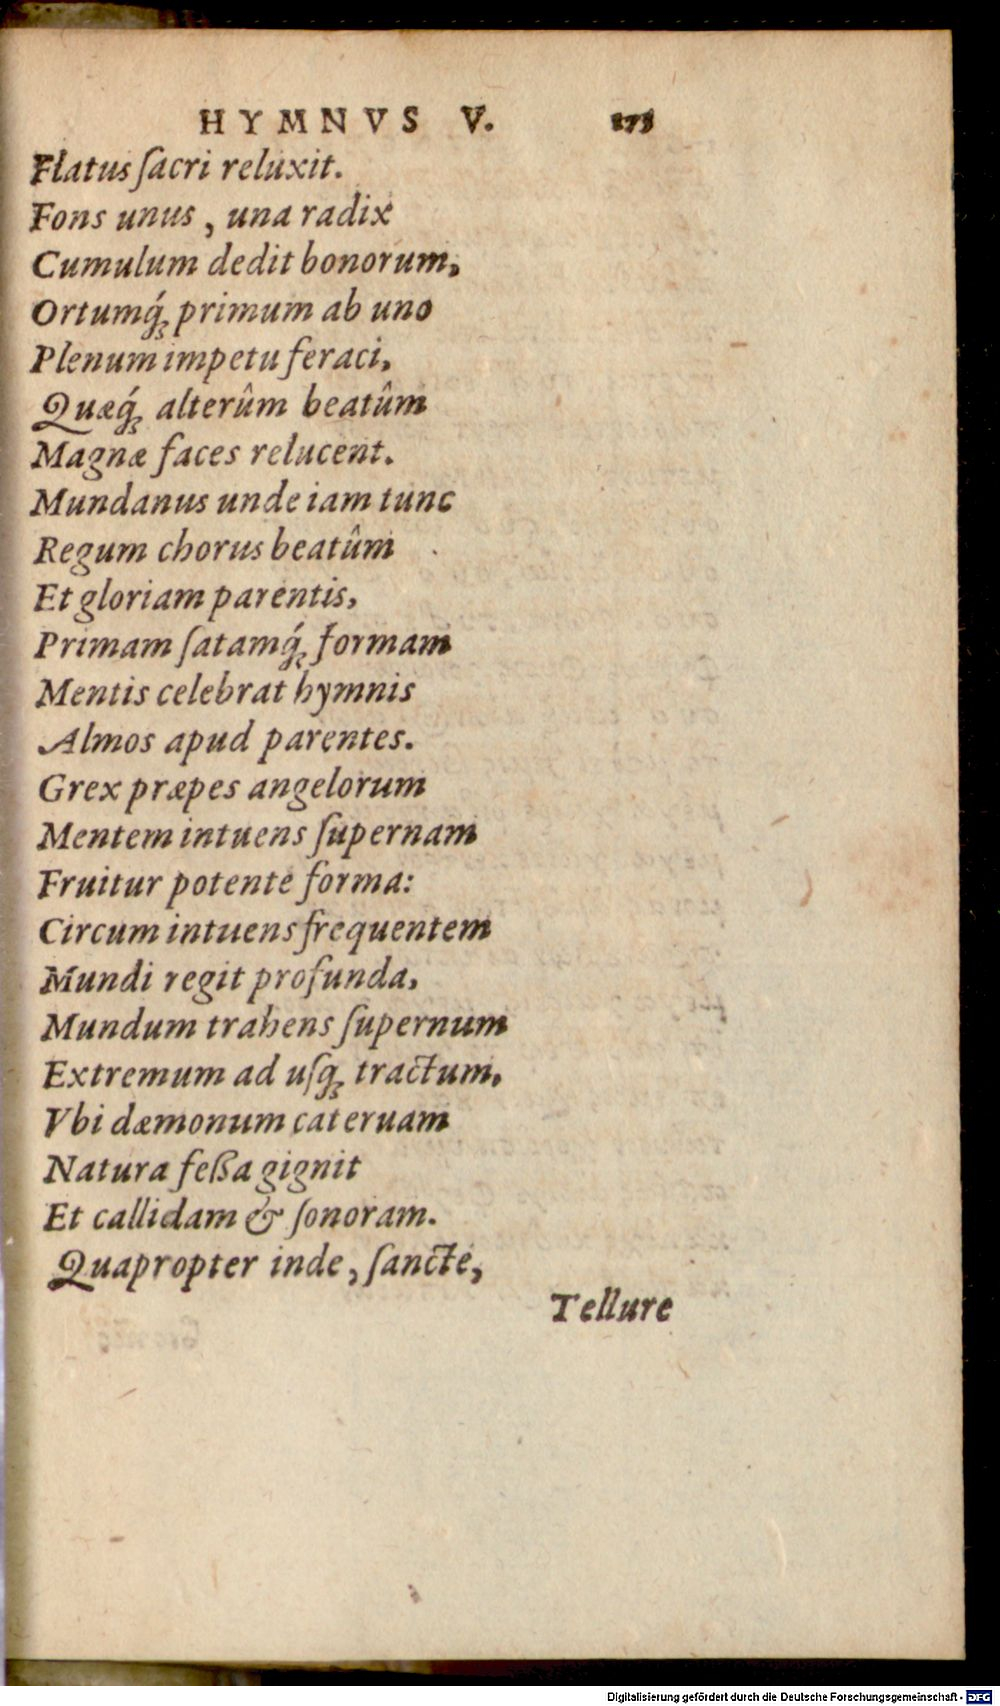 HYMNVS V. 275
Flatus ſacri reluxit.
Fons unus, una radix
Cumulum dedit bonorum,
Ortumq́ꝫ primum ab uno
Plenum impetu feraci,
Quæq́ꝫ alterûm beatûm
Magnæ faces relucent.
Mundanus unde iam tunc
Regum chorus beatûm
Et gloriam parentis,
Primam ſatamq́ꝫ formam
Mentis celebrat hymnis
Almos apud parentes.
Grex præpes angelorum
Mentem intuens ſupernam
Fruitur potente forma:
Circum intuens frequentem
Mundi regit profunda,
Mundum trahens ſupernum
Extremum ad uſqꝫ tractum,
Vbi dæmonum cateruam
Natura feßa gignit
Et callidam & ſonoram.
Quapropter inde, ſancte,
Tellure
Digitalisierung gefördert durch die Deutsche Forschungsgemeinschaft - DFG